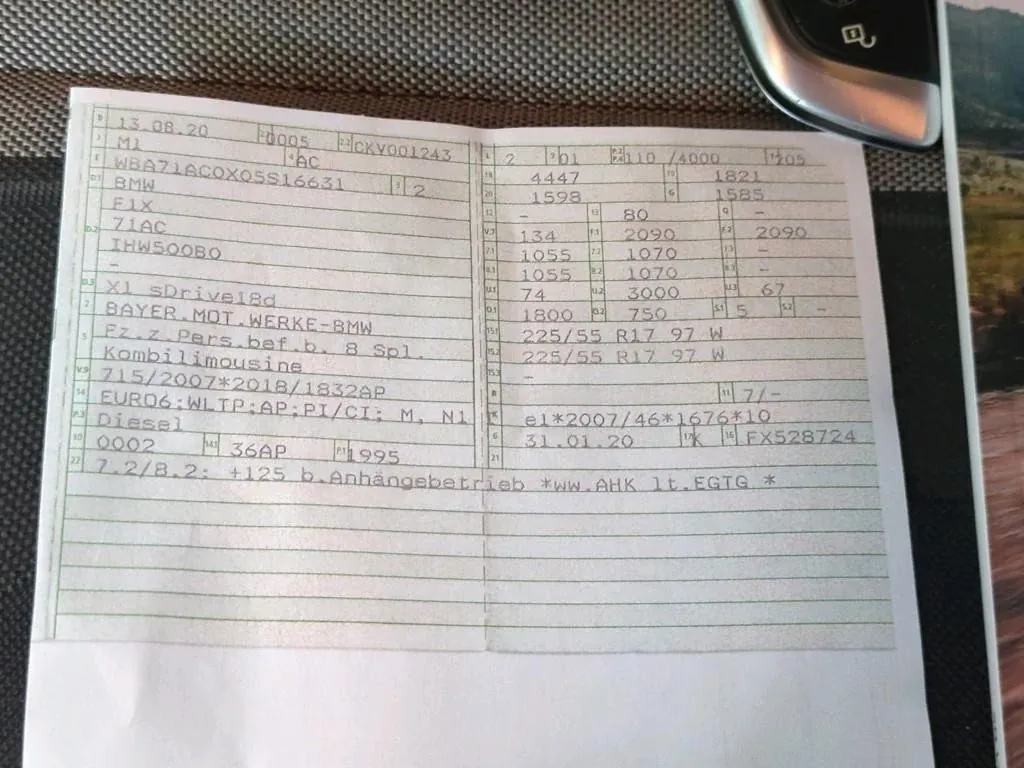 B 13.08.20 2.1 0005 2.2 CKV001243
J M1 4 AC
E WBA71AC0X05S16631 3 2
D.1 BMW
F1X
D.2 71AC
IHW500B0
-
D.3 X1 sDrive18d
2 BAYER.MOT.WERKE-BMW
5 Fz.z.Pers.bef.b. 8 Spl.
Kombilimousine
V.9 715/2007*2018/1832AP
14 EURO6;WLTP;AP;PI/CI; M, N1
P.3 Diesel
10 0002 14.1 36AP P.1 1995
22 7.2/8.2: +125 b.Anhängebetrieb *ww.AHK lt.EGTG *
L 2 9 01 P.2 P.4 110 /4000 T 205
18 4447 19 1821
20 1598 G 1585
12 - 13 80 Q -
V.7 134 F.1 2090 F.2 2090
7.1 1055 7.2 1070 7.3 -
8.1 1055 8.2 1070 8.3 -
U.1 74 U.2 3000 U.3 67
O.1 1800 O.2 750 S.1 5 S.2 -
15.1 225/55 R17 97 W
15.2 225/55 R17 97 W
15.3 -
R 11 7/-
K e1*2007/46*1676*10
6 31.01.20 17 K 16 FX528724
21